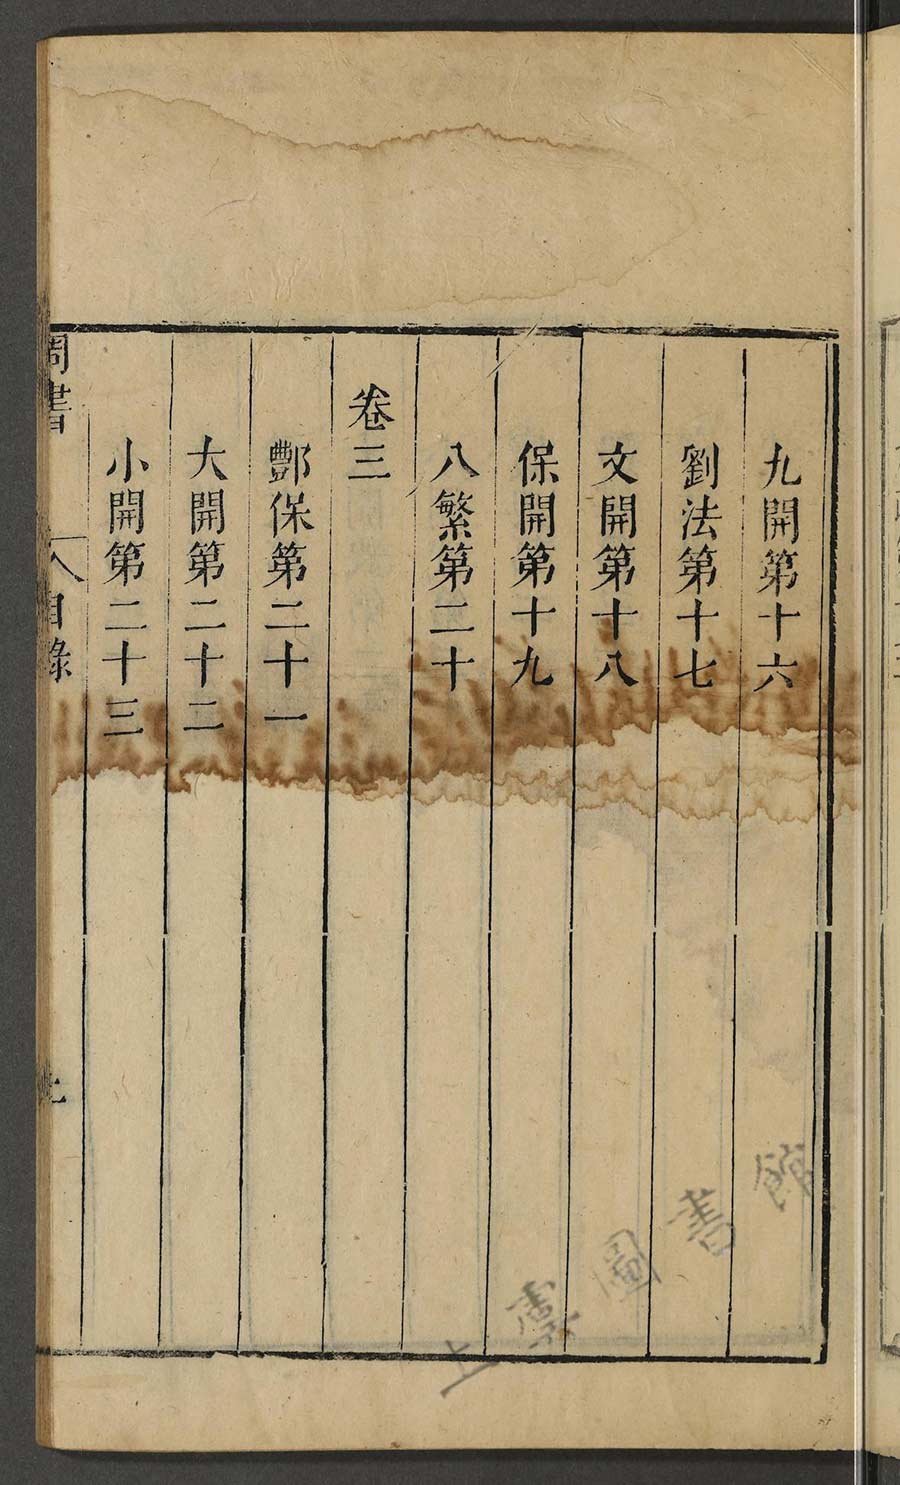 九開第十六
劉法第十七
文開第十八
保開第十九
八繁第二十
卷三
酆保第二十一
大開第二十二
小開第二十三
周書
目錄
上虞圖書館